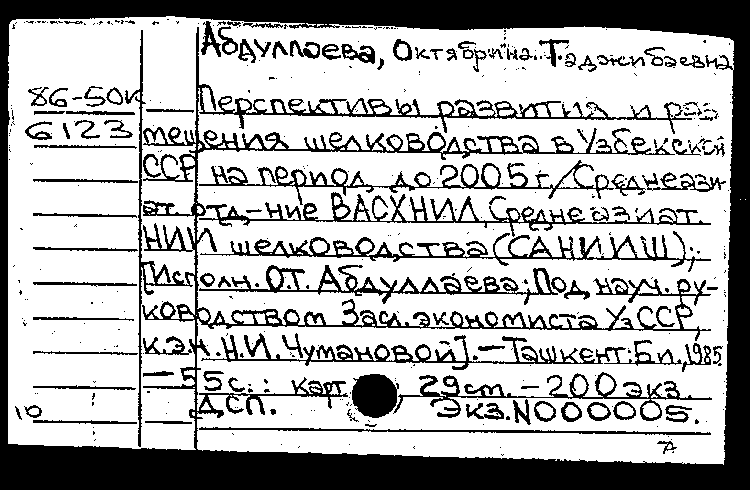 Абдуллаева, Октябрина Таджибаевна
86-50к Перспективы развития и раз
6123 мещения шелководства в Узбекской
ССР на период до 2005 г. / Среднеази-
ат. отд-ние ВАСХНИЛ, Среднеазиат.
НИИ шелководства (САНИИШ);
[Исполн. О.Т. Абдуллаева; Под науч. ру-
ководством Засл. экономиста УзССР,
к.э.н. Н.И. Чумановой]. — Ташкент: Б.и., 1985
— 55 с.: карт. 29 см. — 200 экз.
10 ДСП. Экз. N000005.